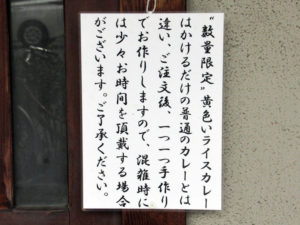 “数量限定”黄色いライスカレー
はかけるだけの普通のカレーとは
違い、ご注文後、一つ一つ手作り
でお作りしますので、混雑時に
は少々お時間を頂戴する場合
がございます。ご了承ください。